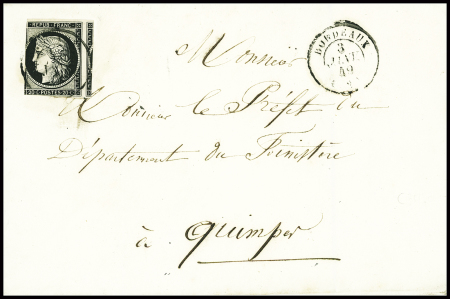 REPUB. FRANC.
20 C POSTES 20 C
BORDEAUX
3
JANV.
49
Monsieur
Monsieur le Préfet du
Département du Finistère
à Quimper